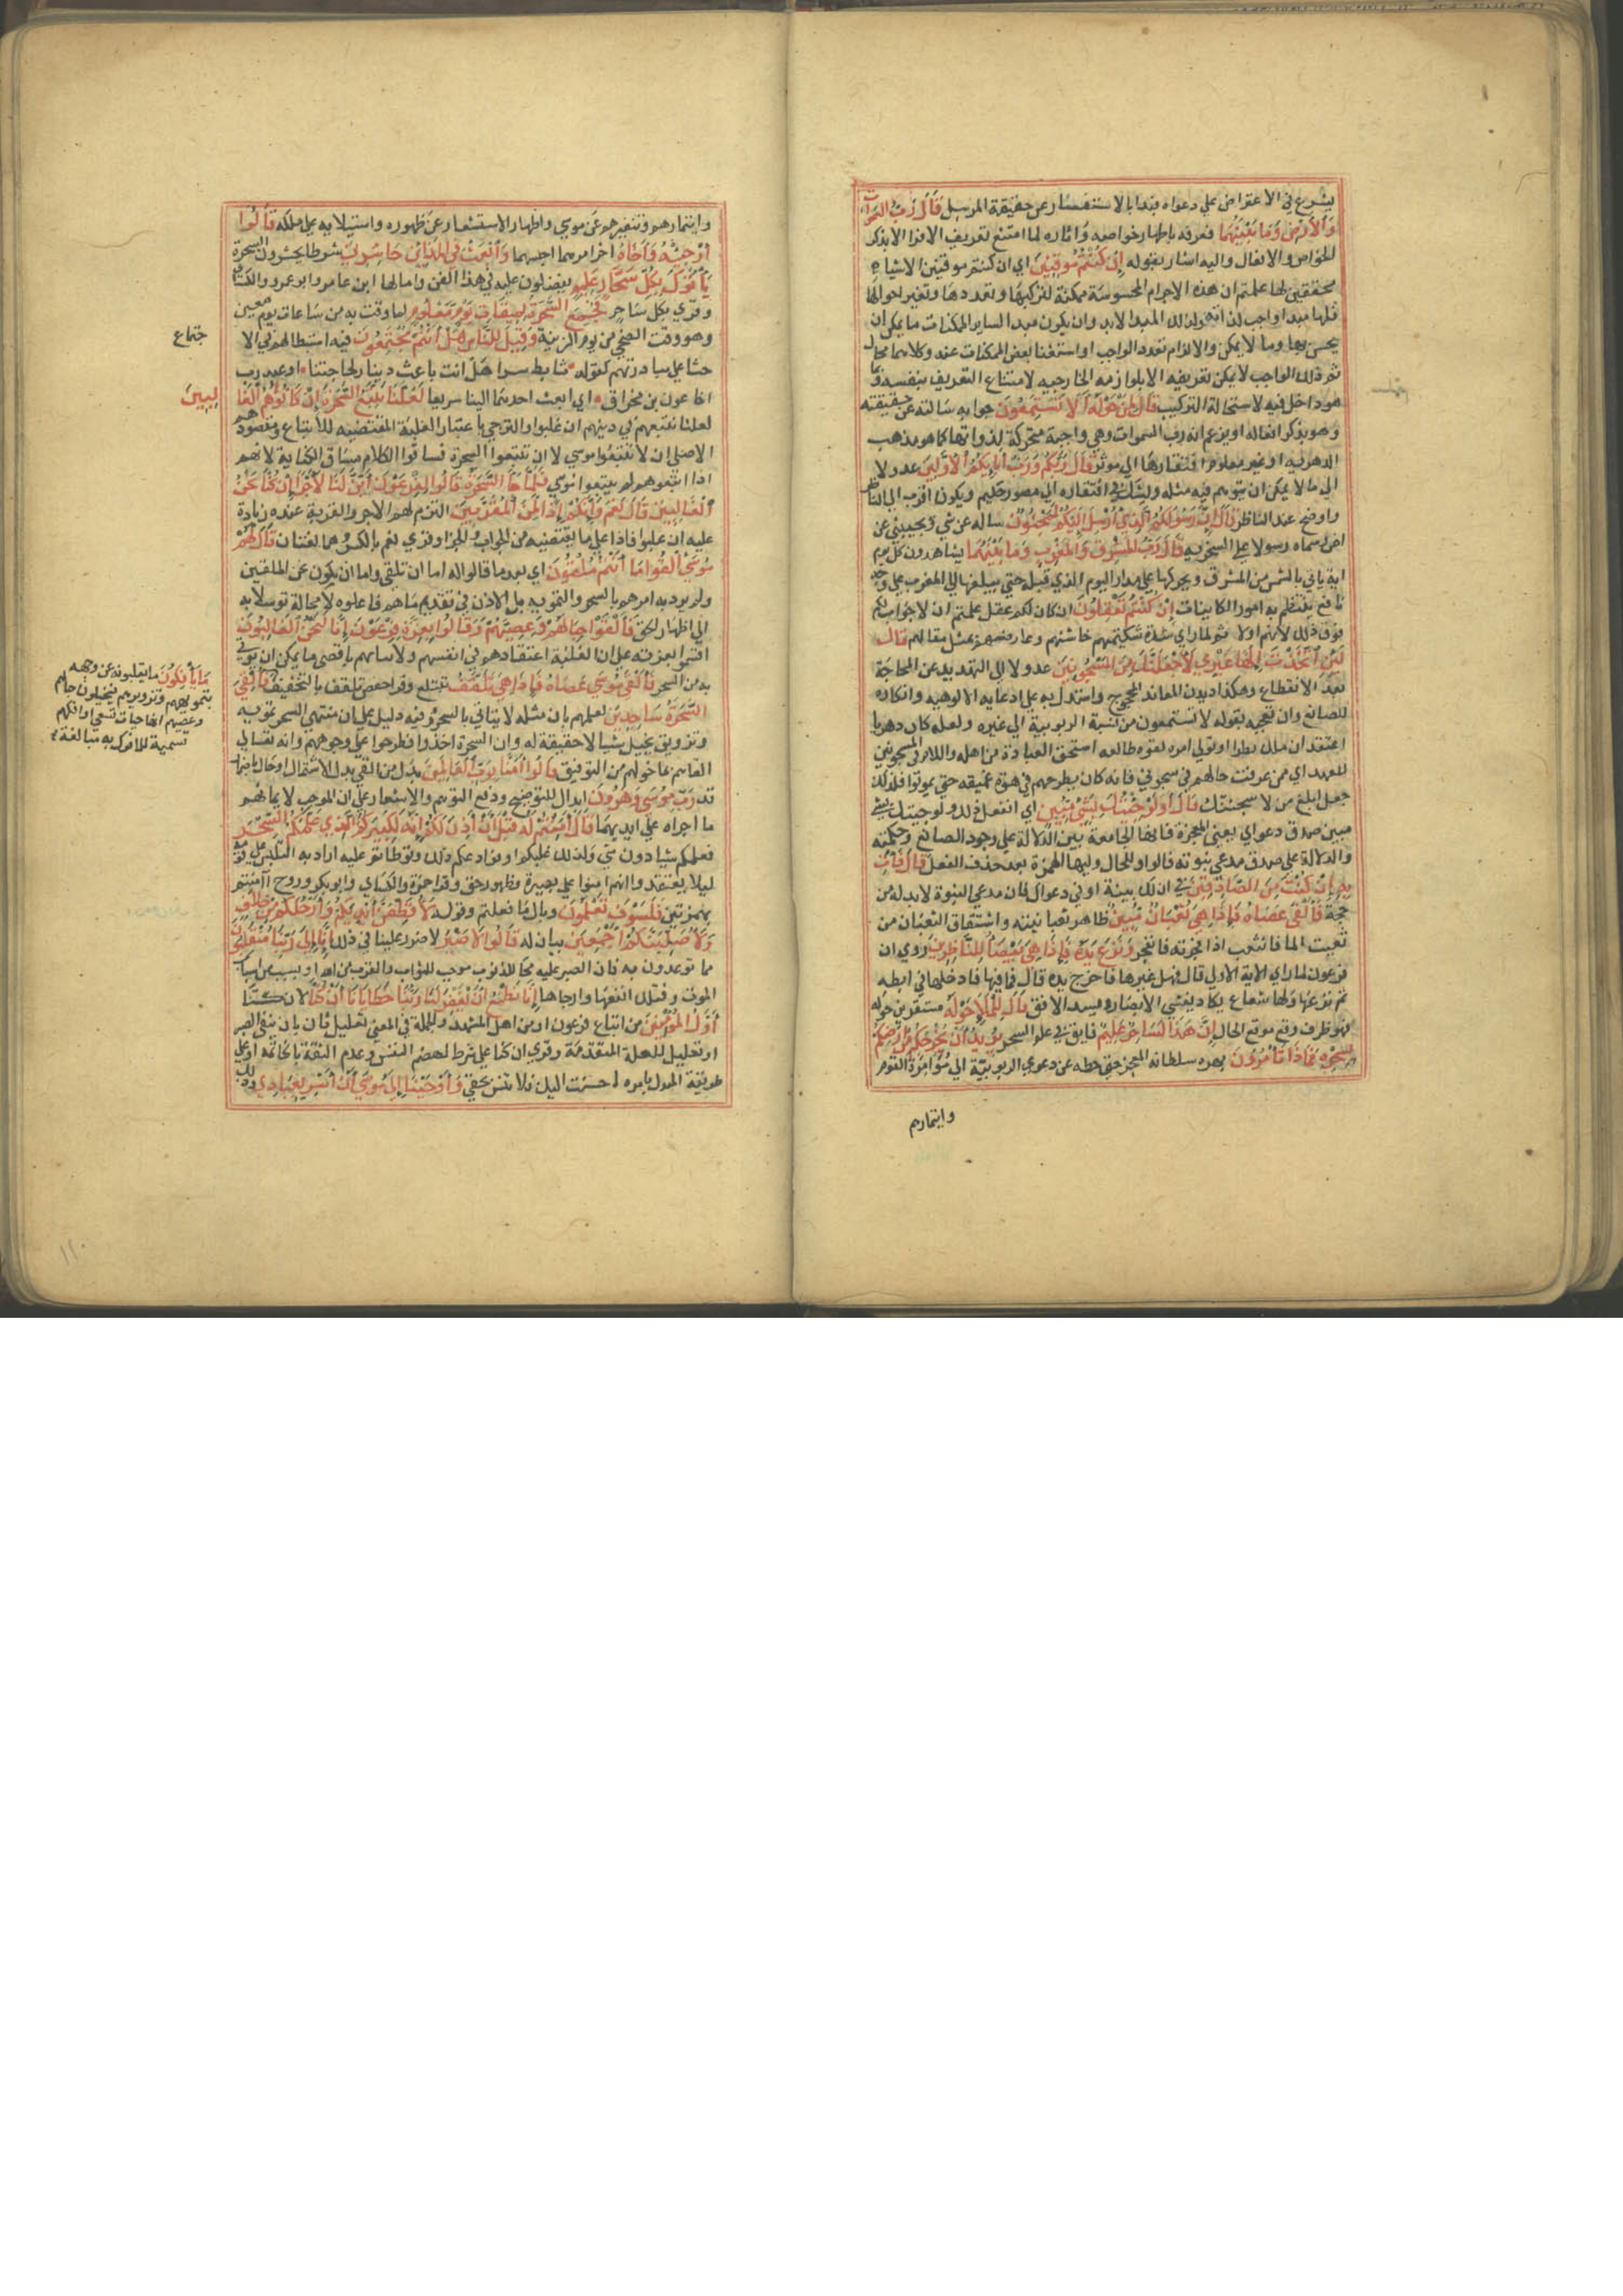 يشرع في الاعتراض على دعواه فبدا بالاستفسار عن حقيقة المرسل قَالَ رَبُّ السَّمَوَاتِ
وَالأَرْضِ وَمَا بَيْنَهُمَا فعرفه باظهار خواصه واثاره لما امتنع تعريف الافراد الا بذكر
الخواص والافعال واليه اشار بقوله إِنْ كُنْتُمْ مُوقِنِينَ اي ان كنتم موقنين الاشياء
محققين لها علمتم ان هذه الاجرام المحسوسة ممكنة لتركبها وتعددها وتغير احوالها
فلها مبدا واجب لذاته وذلك المبدا لابد وان يكون مبدا لساير الممكنات ما يمكن ان
يحس بها وما لا يمكن والا لزم تعدد الواجب او استغنا بعض الممكنات عنه وكلاهما محال
ثم ذلك الواجب لا يمكن تعريفه الا بلوازمه الخارجيه لامتناع التعريف بنفسه وبما
هو داخل فيه لاستحالة التركيب قَالَ لِمَنْ حَوْلَهُ أَلاَ تَسْتَمِعُونَ جوابه سالته عن حقيقته
وهو يذكر افعاله او يزعم انه رب السموات وهي واجبة متحركة لذواتها كما هو مذهب
الدهرية او غير معلوم افتقارها الى موثر قَالَ رَبُّكُمْ وَرَبُّ آبَائِكُمُ الأَوَّلِينَ عدولا
الى ما لا يمكن ان يتوهم فيه مثله ويشك في افتقاره الى مصور حكيم ويكون اقرب الى الناظر
واوضح عند الناظر قَالَ إِنَّ رَسُولَكُمُ الَّذِي أُرْسِلَ إِلَيْكُمْ لَمَجْنُونٌ ساله عن شي ويجيبني عن
اخر وسماه رسولا على السخرية قَالَ رَبُّ المَشْرِقِ وَالمَغْرِبِ وَمَا بَيْنَهُمَا يشاهدون كل يوم
انه ياتي بالشمس من المشرق ويحركها على مدار اليوم الذي قبله حتى يبلغها الى المغرب على وجه
نافع ينتظم به امور الكاينات إِنْ كُنْتُمْ تَعْقِلُونَ ان كان لكم عقل علمتم ان لا جواب لكم
فوق ذلك لاينهم اولا ثم لما راى شدة شكيمتهم خاشنهم وعارضهم بمثل مقالهم قَالَ
لَئِنِ اتَّخَذْتَ إِلَهًا غَيْرِي لأَجْعَلَنَّكَ مِنَ المَسْجُونِينَ عدولا الى التهديد عن المحاجة
بعد الانقطاع وهكذا ديدن المعاند المحجوج واستدل به على ادعايه الالوهيه وانكاره
للصانع وان تعجبه بقوله الا تستمعون من نسبة الربوبية الى غيره ولعله كان دهريا
اعتقد ان من ملك قطرا او تولى امره بقوة طالعه استحق العبادة من اهله واللام في المسجونين
للعهد اي ممن عرفت حالهم في سجوني فانه كان يطرحهم في هوة عميقه حتى يموتوا فلذلك
جعل ابلغ من لاسجننك قَالَ أَوَلَوْ جِئْتُكَ بِشَيْءٍ مُبِينٍ اي اتفعل ذلك ولو جيتك بشي
مبين صدق دعواي يعني المعجزة فانها الجامعة بين الدلالة على وجود الصانع وحكمته
والدلالة على صدق مدعي نبوته فالواو للحال وليها الهمزة بعد حذف الفعل قَالَ فَأْتِ
بِهِ إِنْ كُنْتَ مِنَ الصَّادِقِينَ في ان لك بينة او في دعواك فان مدعي النبوة لابد له من
حجة فَأَلْقَى عَصَاهُ فَإِذَا هِيَ ثُعْبَانٌ مُبِينٌ ظاهر ثعبانيته واشتقاق الثعبان من
ثعبت الما فانثعب اذا فجرته فانفجر وَنَزَعَ يَدَهُ فَإِذَا هِيَ بَيْضَاءُ لِلنَّاظِرِينَ روي ان
فرعون لما راى الاية الاولى قال فهل غيرها فاخرج يده قال فما فيها فادخلها في ابطه
ثم نزعها ولها شعاع يكاد يغشي الابصار ويسد الافق قَالَ لِلْمَلإِ حَوْلَهُ مستقرين حوله
فهو ظرف وقع موقع الحال إِنَّ هَذَا لَسَاحِرٌ عَلِيمٌ فايق في علم السحر يُرِيدُ أَنْ يُخْرِجَكُمْ مِنْ أَرْضِكُمْ
بِسِحْرِهِ فَمَاذَا تَأْمُرُونَ بهره سلطان المعجز حتى حطه عن دعوى الربوبيّة الى مؤامرة القوم
وايتمارهم
وايتمارهم وتنفيرهم عن موسى واظهار الاستشعار عن ظهوره واستيلايه على ملكه قَالُوا
أَرْجِئْهُ وَأَخَاهُ اخر امرهما احبسهما وَابْعَثْ فِي المَدَائِنِ حَاشِرِينَ شرطا يحشرون السحرة
يَأْتُوكَ بِكُلِّ سَحَّارٍ عَلِيمٍ يفضلون عليه في هذا الفن وامالها ابن عامر وابو عمرو والكسائي
وقري بكل ساحر فَجُمِعَ السَّحَرَةُ لِمِيقَاتِ يَوْمٍ مَعْلُومٍ لما وقت به من ساعات يوم معين
وهو وقت الضحى من يوم الزينة وَقِيلَ لِلنَّاسِ هَلْ أَنْتُمْ مُجْتَمِعُونَ فيه استبطا لهم في الا
جتماع
حثا على مبادرتهم كقول تابط شرا هل انت باعث دينار لحاجتنا او عبد رب
اخا عون بن مخراق اي ابعث احدهما الينا سريعا لَعَلَّنَا نَتَّبِعُ السَّحَرَةَ إِنْ كَانُوا هُمُ الغَا
لِبِينَ
لعلنا نتبعهم في دينهم ان غلبوا والترجي باعتبار الغلبة المقتضيه للاتباع ومقصودهم
الاصلي ان لا يتبعوا موسى لا ان يتبعوا السحرة فساقوا الكلام مساق الكناية لانهم
اذا اتبعوهم لم يتبعوا موسى فَلَمَّا جَاءَ السَّحَرَةُ قَالُوا لِفِرْعَوْنَ أَئِنَّ لَنَا لأَجْرًا إِنْ كُنَّا نَحْنُ
الغَالِبِينَ قَالَ نَعَمْ وَإِنَّكُمْ إِذًا لَمِنَ المُقَرَّبِينَ التزم لهم الاجر والقربة عنده زيادة
عليه ان غلبوا فاذا على ما يقتضيه من الجواب والجزا وقري نعم بالكسر وهما لغتان قَالَ لَهُمْ
مُوسَى أَلْقُوا مَا أَنْتُمْ مُلْقُونَ اي بعد ما قالوا له اما ان تلقي واما ان نكون نحن الملقين
ولم يرد به امرهم بالسحر والتمويه بل الاذن في تقديم ما هم فاعلوه لا محالة توسلا به
الى اظهار الحق فَأَلْقَوْا حِبَالَهُمْ وَعِصِيَّهُمْ وَقَالُوا بِعِزَّةِ فِرْعَوْنَ إِنَّا لَنَحْنُ الغَالِبُونَ
اقسموا بعزته على ان الغلبة لهم لفرط اعتقادهم في انفسهم ولاتيانهم باقصى ما يمكن ان يؤتى
به من السحر فَأَلْقَى مُوسَى عَصَاهُ فَإِذَا هِيَ تَلْقَفُ تبتلع وقرا حفص تلقف بالتخفيف
مَا يَأْفِكُونَ ما يقلبونه عن وجهه
بتمويههم وتزويرهم فيخيلون حبالهم
وعصيهم انها حيات تسعى او افكهم
تسمية للمافوك به مبالغة
فَأُلْقِيَ
السَّحَرَةُ سَاجِدِينَ لعلمهم بان مثله لا يتاتى بالسحر وفيه دليل على ان منتهى السحر تمويه
وتزويق يخيل شيا لا حقيقة له وان السحرة اخذوا فطرحوا على وجوههم وانه تعالى
القاهم بما خولهم من التوفيق قَالُوا آمَنَّا بِرَبِّ العَالَمِينَ بدل من القي بدل الاشتمال او حال باضمار
قد رَبِّ مُوسَى وَهَرُونَ ابدال للتوضيح ودفع التوهم والاشعار على ان الموجب لايمانهم
ما اجراه على ايديهما قَالَ آمَنْتُمْ لَهُ قَبْلَ أَنْ آذَنَ لَكُمْ إِنَّهُ لَكَبِيرُكُمُ الَّذِي عَلَّمَكُمُ السِّحْرَ
فعلمكم شيا دون شي ولذلك غلبكم او فوادعكم ذلك وتواطاتم عليه اراد به التلبيس على قومه
ليلا يعتقدوا انهم امنوا على بصيرة وظهور حق وقرا حمزة والكساي وابو بكر وروح أآمنتم
بهمزتين فَلَسَوْفَ تَعْلَمُونَ وبال ما فعلتم وقوله لأُقَطِّعَنَّ أَيْدِيَكُمْ وَأَرْجُلَكُمْ مِنْ خِلاَفٍ
وَلأُصَلِّبَنَّكُمْ أَجْمَعِينَ بيان له قَالُوا لاَ ضَيْرَ لا ضرر علينا في ذلك إِنَّا إِلَى رَبِّنَا مُنْقَلِبُونَ
مما توعدون به فان الصبر عليه محا للذنوب موجب للثواب والقرب من الله او بسبب من اسباب
الموت وقتلك انفعها وارجاها إِنَّا نَطْمَعُ أَنْ يَغْفِرَ لَنَا رَبُّنَا خَطَايَانَا أَنْ كُنَّا لان كنا
أَوَّلَ المُؤْمِنِينَ من اتباع فرعون او من اهل المشهد والجملة في المعنى تعليل ثان بان لنفي الضير
او تعليل للعلة المتقدمة وقري ان كنا على شرط لهضم النفس وعدم الثقة بالخاتمة او على
طريقة المدل بامره ان احسنت اليك فلا تنس حقي وَأَوْحَيْنَا إِلَى مُوسَى أَنْ أَسْرِ بِعِبَادِي وذلك
١٢٠